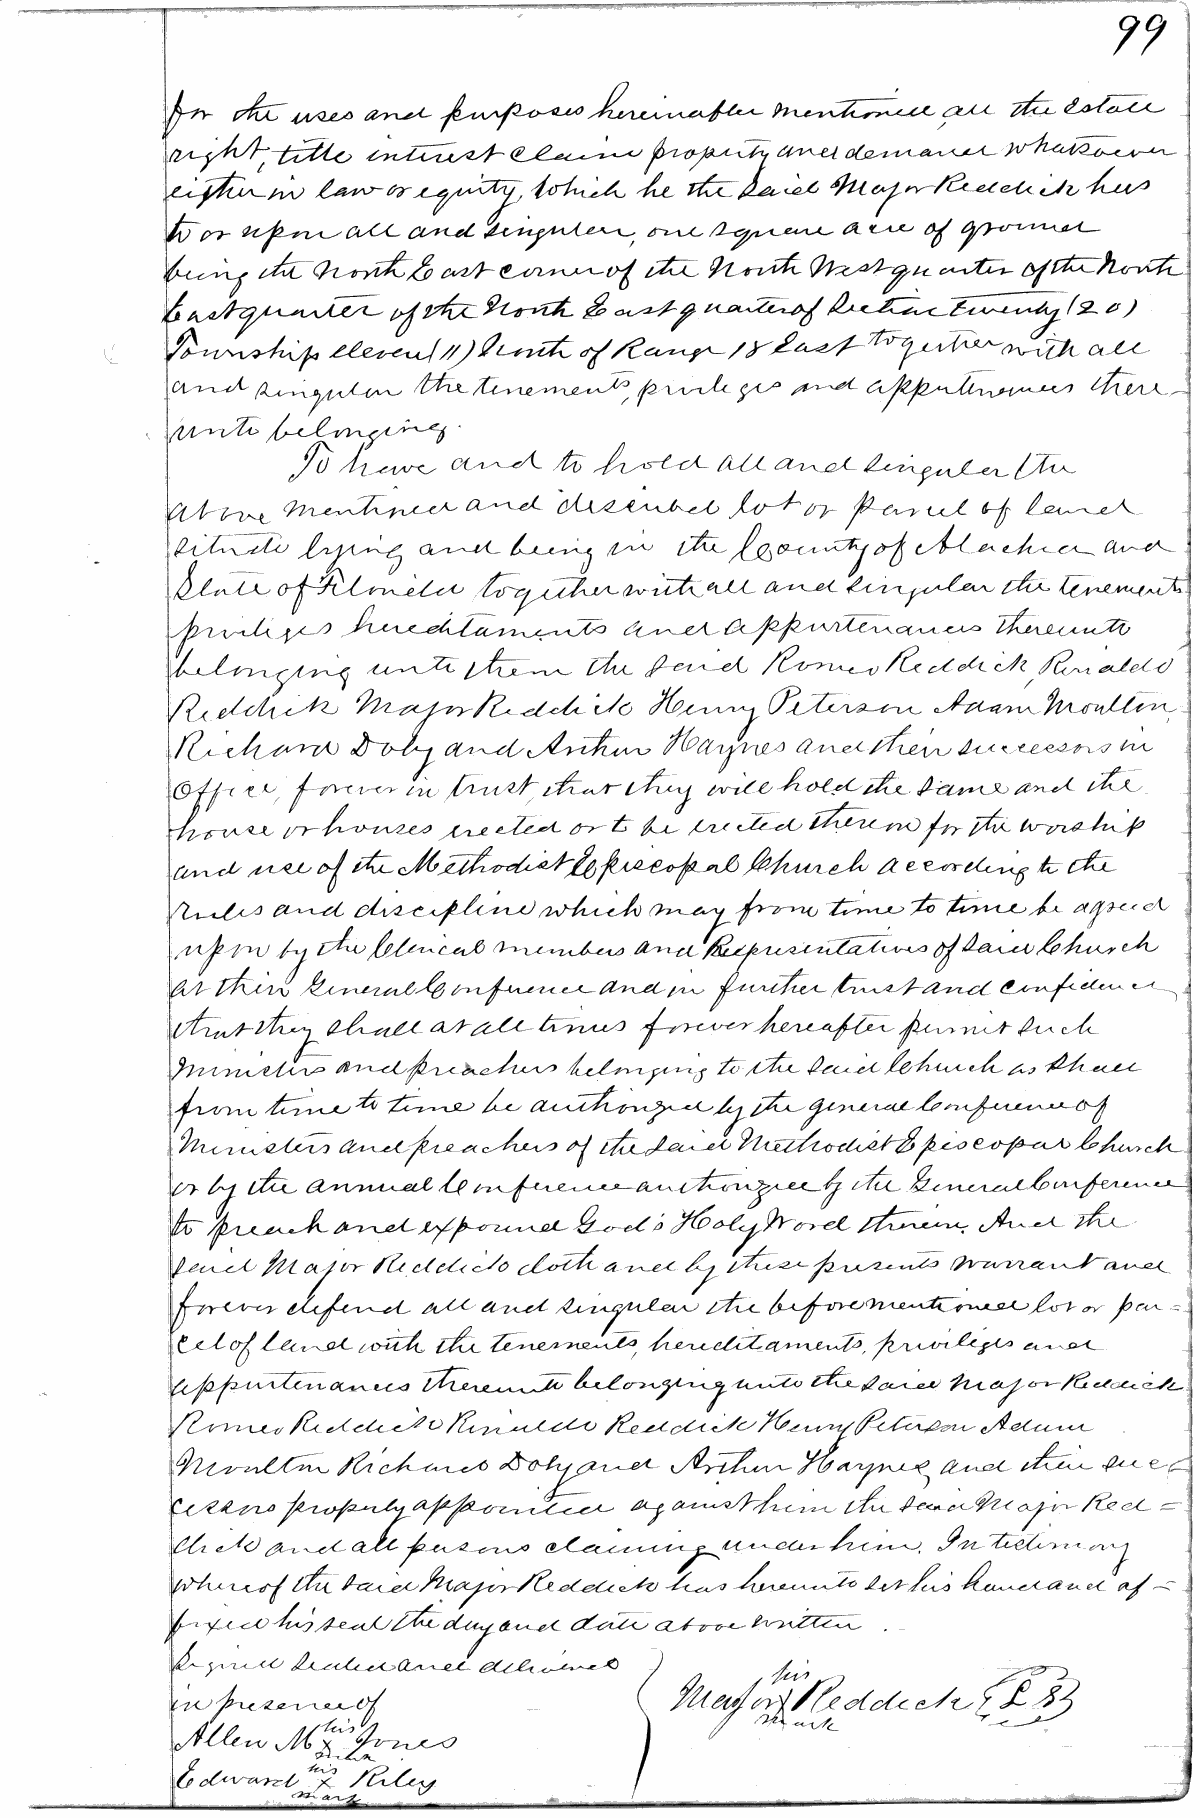 99
for the uses and purposes hereinafter mentioned, all the Estate
right, title interest claim property and demand whatsoever
either in law or equity, which he the said Major Reddick has
to or upon all and singular, one square acre of ground
being the North East corner of the North West quarter of the North
East quarter of the North East quarter of Section Twenty (20)
Township eleven (11) South of Range 18 East together with all
and singular the tenements, privileges and appurtenances there-
unto belonging.
To have and to hold all and singular the
above mentioned and described lot or parcel of land
situate lying and being in the County of Alachua and
State of Florida together with all and singular the tenements
privileges hereditaments and appurtenances thereunto
belonging unto them the said Romeo Reddick, Rinaldo
Reddick Major Reddick Henry Peterson Adam Moulton
Richard Doby and Arthur Haynes and their successors in
Office, forever in trust, that they will hold the same and the
house or houses erected or to be erected thereon for the worship
and use of the Methodist Episcopal Church according to the
rules and discipline which may from time to time be agreed
upon by the Clerical members and Representatives of said Church
at their General Conference and in further trust and confidence
that they shall at all times forever hereafter permit such
Ministers and preachers belonging to the said Church as shall
from time to time be authorized by the general Conference of
Ministers and preachers of the said Methodist Episcopal Church
or by the annual Conference authorized by the General Conference
to preach and expound God's Holy Word therein. And the
said Major Reddick doth and by these presents warrant and
forever defend all and singular the beforementioned lot or par=
cel of land with the tenements, hereditaments, privileges and
appurtenances thereunto belonging unto the said Major Reddick
Romeo Reddick Rinaldo Reddick Henry Peterson Adam
Moulton Richard Doby and Arthur Haynes and their suc-
cessors properly appointed against him the said Major Red=
dick and all persons claiming under him. In testimony
whereof the said Major Reddick has hereunto set his hand and af=
fixed his seal the day and date above written.
Signed sealed and delivered
in presence of
his
Major x Reddick {L S}
mark
his
Allen M x Jones
mark
his
Edward x Riley
mark